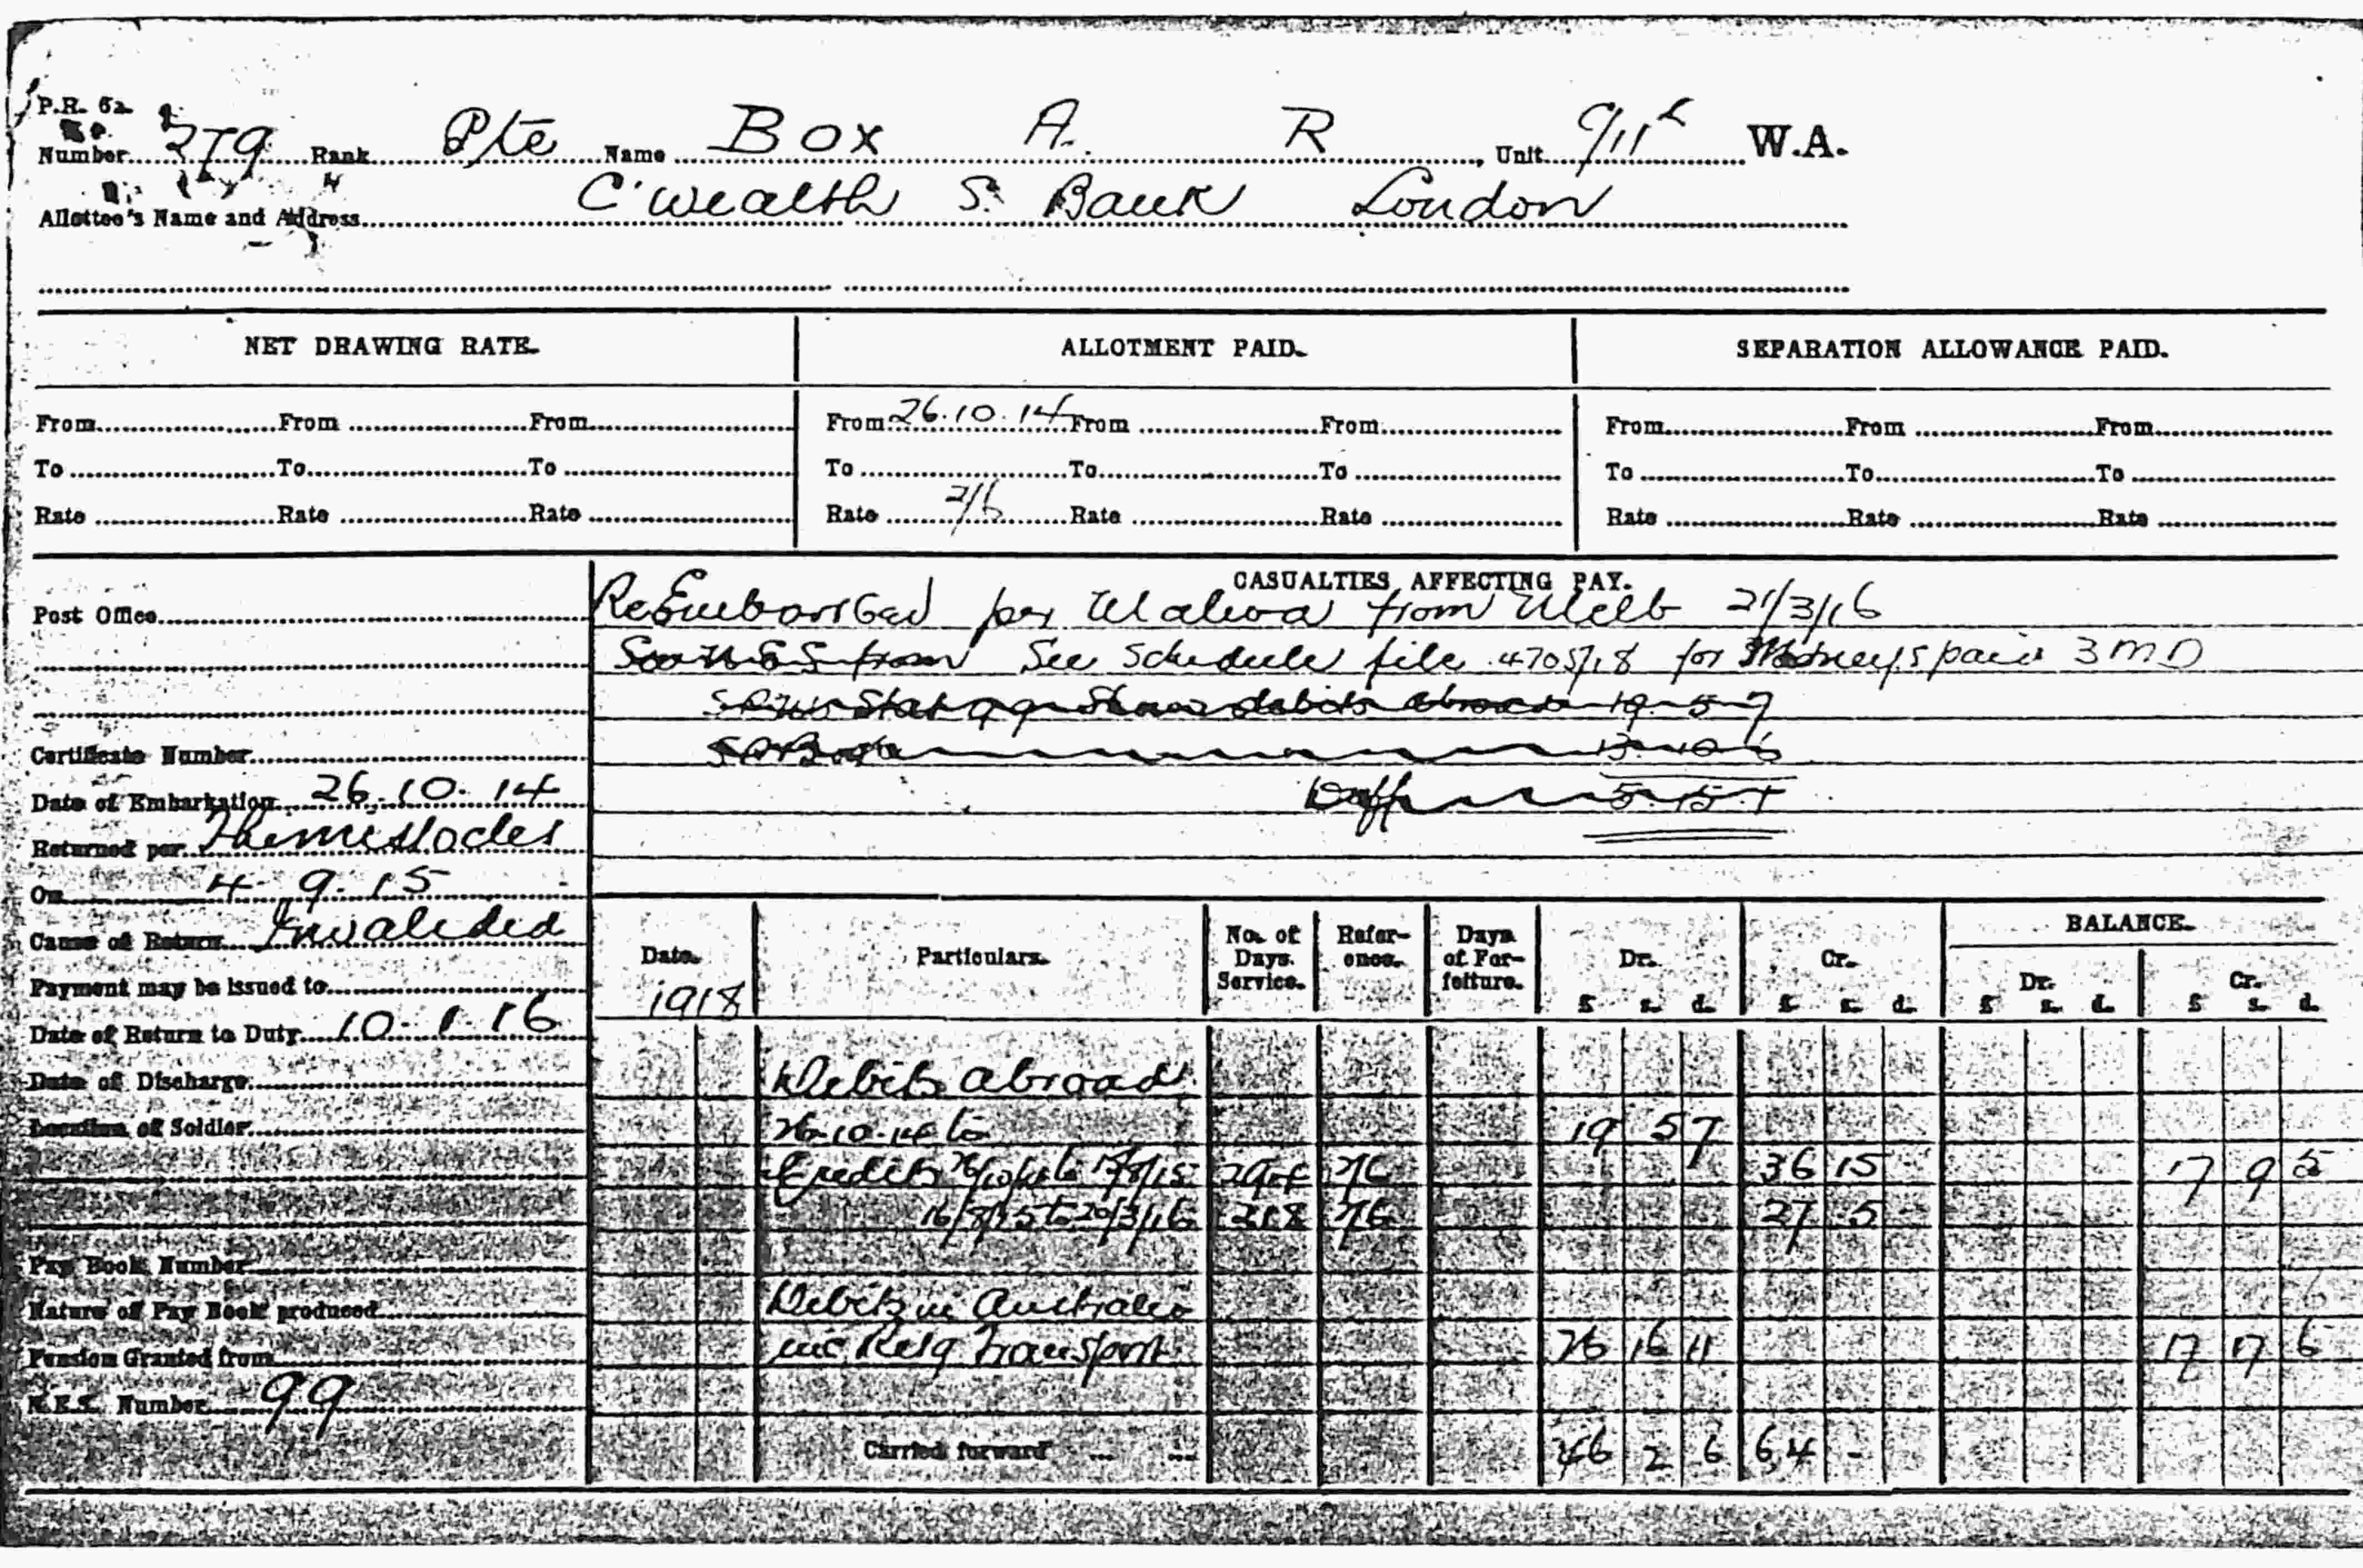 P.R. 6a.
Number 279 Rank Pte Name Box A. R , Unit C/11th W.A.
Allottee's Name and Address C'wealth S. Bank London
NET DRAWING RATE. ALLOTMENT PAID. SEPARATION ALLOWANCE PAID.
From From From From 26.10.14 From From From From From
To To To To To To To To To
Rate Rate Rate Rate 2/6 Rate Rate Rate Rate Rate
CASUALTIES AFFECTING PAY.
Post Office ReEmbarked per Malwa from Melb 21/3/16
from See Schedule file 4705/18 for Moneys paid 3 MD
debits abroad 19 5 7
13 10 6
Certificate Number
Diff 5 15 1
Date of Embarkation 26.10.14
Returned per Themistocles
On 4 9.15
Cause of Return Invalided
Payment may be issued to
Date of Return to Duty 10.1.16
Date of Discharge
Location of Soldier
Pay Book Number
Nature of Pay Book produced
Pension Granted from
N.E.S. Number 99
Date. Particulars. No. of Days Service. Reference. Days of Forfeiture. Dr. Cr. BALANCE.
Dr. Cr.
1918 £ s. d. £ s. d. £ s. d. £ s. d.
Debits abroad
26.10.14 to 19 5 7
Credits 26/10/14 to 15/8/15 294 2/6 36 15 17 9 5
16/8/15 to 20/3/16 218 2/6 27 5
Debits in Australia
inc Transport 26 16 11 17 17 6
Carried forward ... ... 46 2 6 64 -